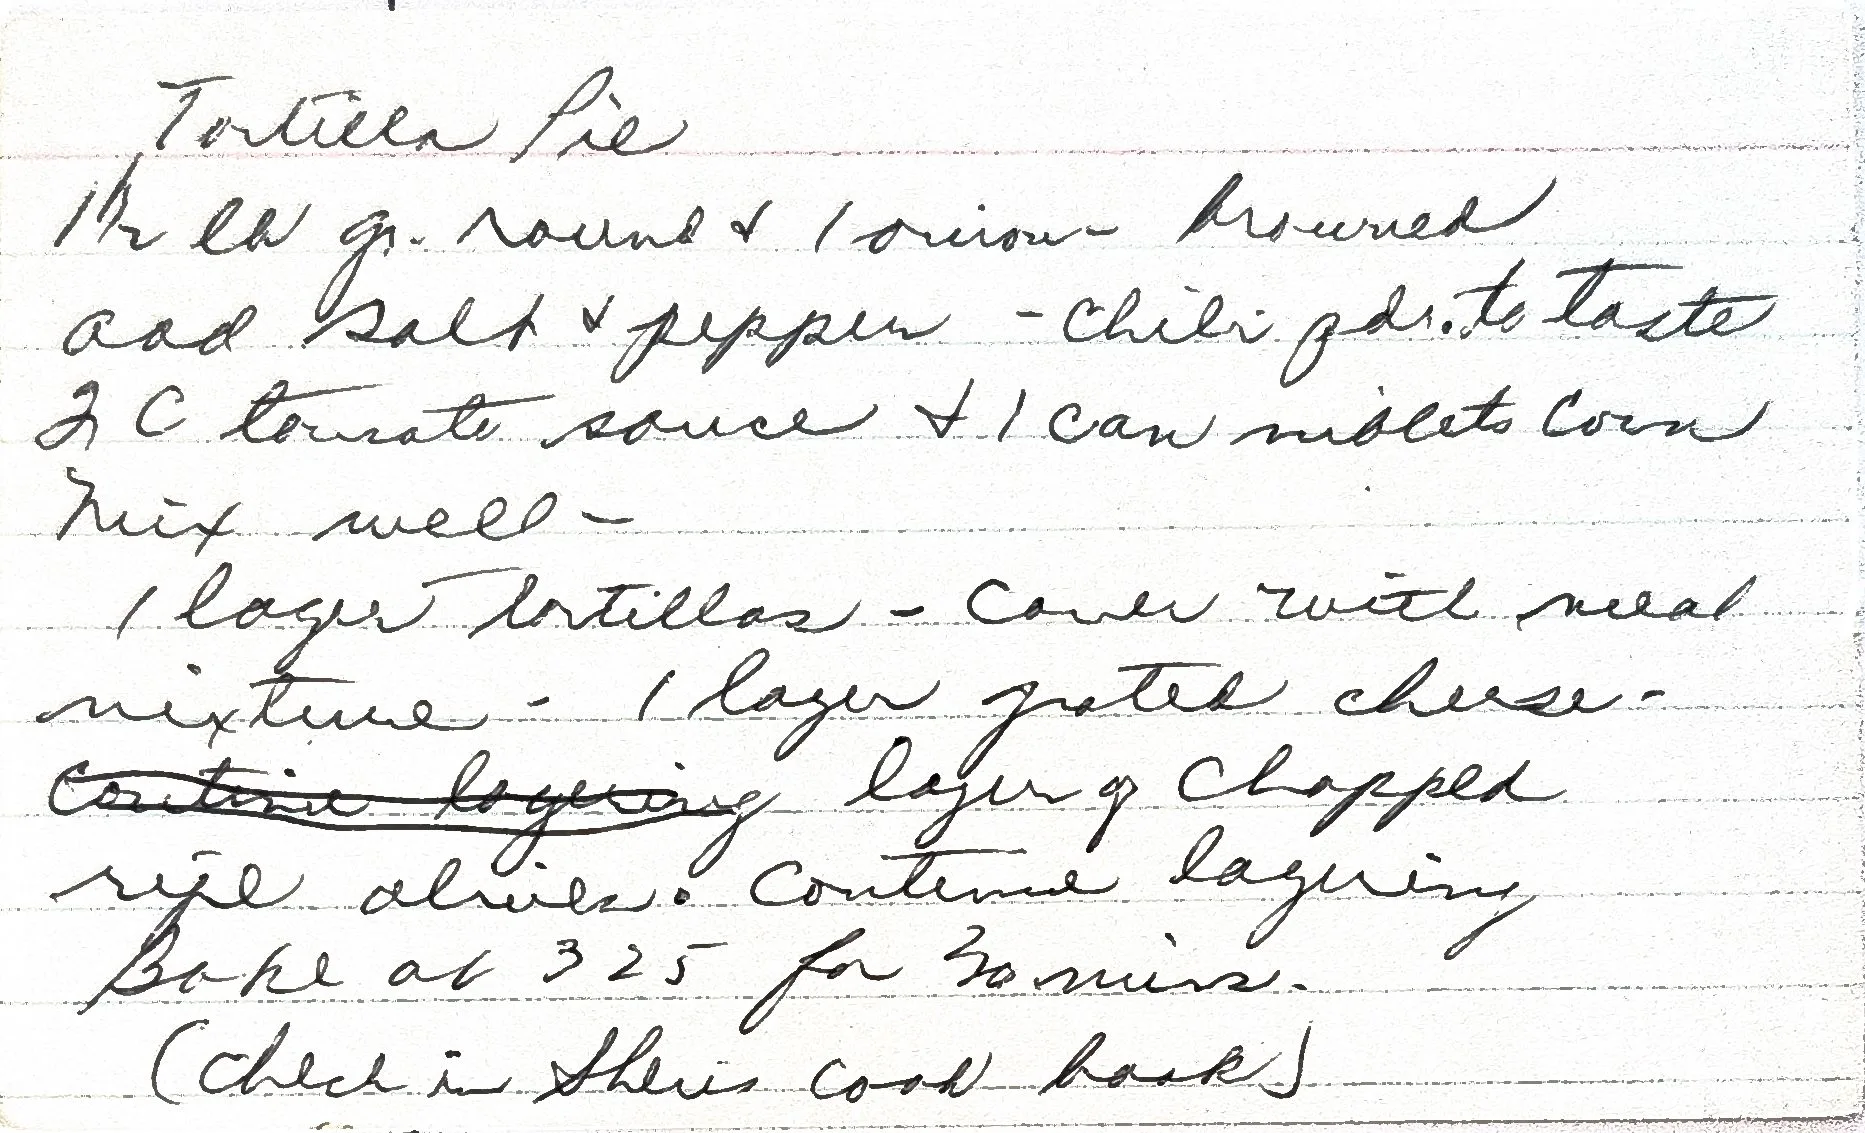 Tortilla Pie
1 1/2 lb gr. round & 1 onion - browned
add salt & pepper - chili pdr. to taste
2 C tomato sauce & 1 can niblets corn
Mix well -
1 layer tortillas - cover with meat
mixture - 1 layer grated cheese -
Continue layering layer of chopped
ripe olives. Continue layering
Bake at 325 for 30 mins.
(check in Sheris cook book)